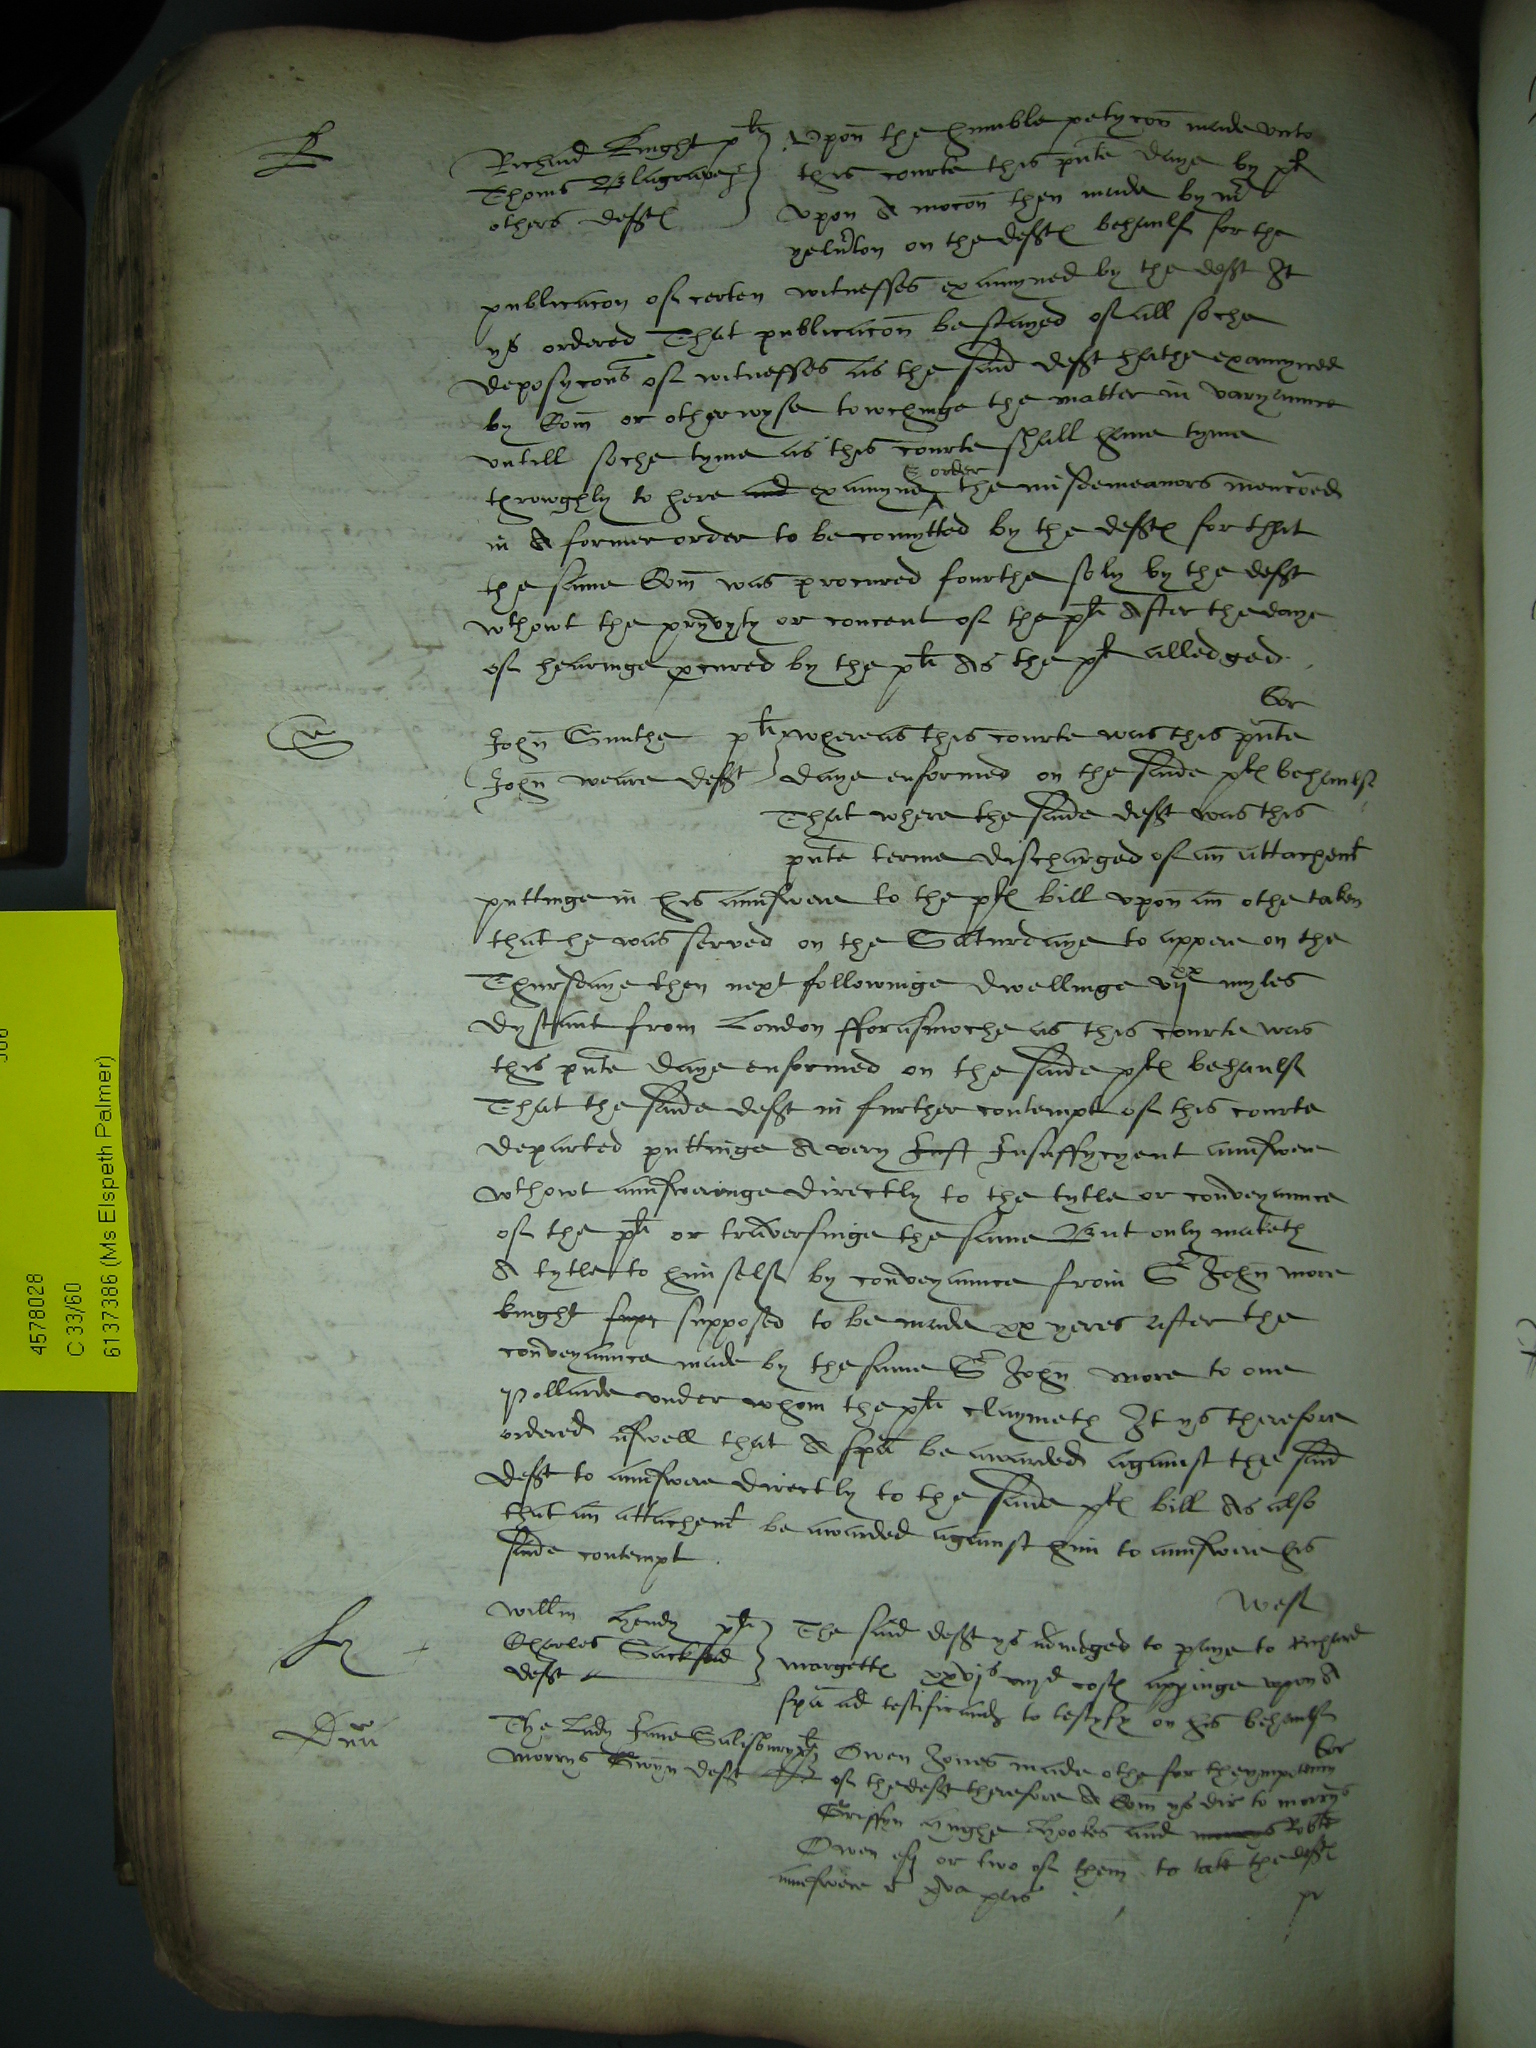 Richard Knight pl
Thoms Blagrave &
others defte
Upon the humble petycon made unto
this courte this pnte daye by pl
upon A mocon then made by mr
yelvrton on the defte behaulf for the
publicacon of certen witnesses examyned by the deft It
ys ordered That publicacon be stayed of all soche
deposycons of witnesses as the said deft hathe examyned
by Com or otherwyse towchinge the matter in varyaunce
untill soche tyme as this courte shall have tyme
throwghly to here and examyne & order the misdemeanors mencoed
in A former order to be comytted by the defte for that
the same Com was procured fourthe soly by the deft
wthowt the pryvyty or concent of the pl After the daye
of hearinge pcured by the pl As the pl alledged
Cor
S
John Smithe pl
John weare deft
whereas this courte was this pnte
daye enformed on the saide pl behaulf
That where the saide deft was this
pnte terme discharged of an attachemt
puttinge in his aunswere to the pl bill upon an othe taken
that he was served on the Saturdaye to appere on the
Thursdaye then next followinge dwellinge vijxx myles
dystant from London fforasmoche as this courte was
this pnte daye enformed on the saide pl behaulf
That the saide deft in further contempt of this courte
departed puttinge A very Inst Insuffycyent aunswere
wthowt aunsweringe directly to the tytle or conveyaunce
of the pl or traversinge the same But only maketh
A tytle to him self by conveyaunce from Sr John more
knight supp supposed to be made xx yeres after the
conveyaunce made by the same Sr John more to one
Pollarde under whom the pl claymeth It ys therefore
ordered aswell that A spa be awarded against the said
deft to aunswere directly to the saide pl bill As also
that an attachemt be awarded against him to aunswere his
saide contempt
West
Willm Hendy pl
Charles Sackfild
deft
The said deft ys adiudged to paye to Richard
margette xxvjs viijd coste appinge upon A
spa ad testificand to testyfy on his behaulf
The Lady Jane Salisbury pl
Morrys Gwyn deft
Cor
Owen Jones made othe for the ympotency
of the deft therefore A Com ys dir to morrys
Griffyn hughe Hookes and Robte
Owen esq or two of them to take the defte
aunswere
4578028
C 33/60
6137386 (Ms Elspeth Palmer)